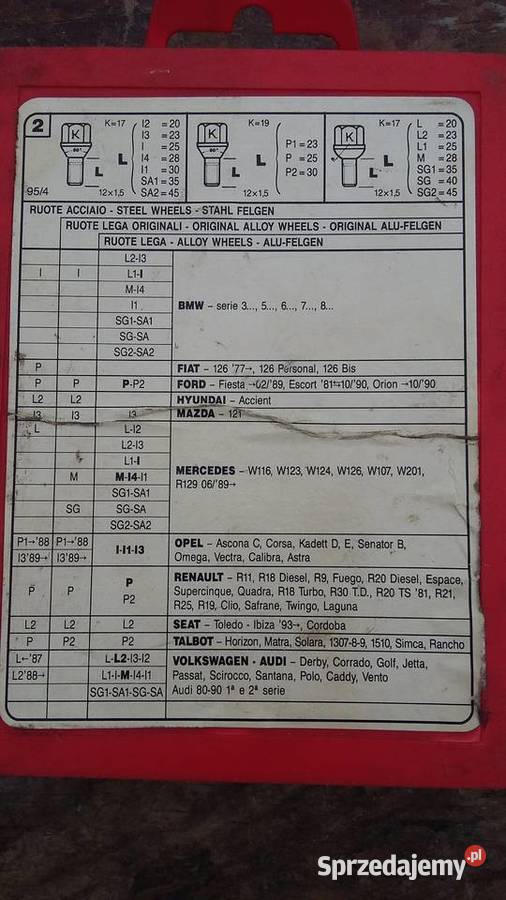 2
K=17
I2 =20
I3 =23
I =25
I4 =28
I1 =30
SA1=35
SA2=45
K
60°
L
L
95/4
12×1,5
K=19
K
L
L
P1=23
P =25
P2=30
12×1,5
K=17
K
L
L
12×1,5
L =20
L2 =23
L1 =25
M =28
SG1=35
SG =40
SG2=45
RUOTE ACCIAIO - STEEL WHEELS - STAHL FELGEN
RUOTE LEGA ORIGINALI - ORIGINAL ALLOY WHEELS - ORIGINAL ALU-FELGEN
RUOTE LEGA - ALLOY WHEELS - ALU-FELGEN
L2-I3
I I L1-I
M-I4
I1
SG1-SA1
SG-SA
SG2-SA2
BMW – serie 3..., 5..., 6..., 7..., 8...
P FIAT – 126 '77→, 126 Personal, 126 Bis
P P P-P2 FORD – Fiesta →02/'89, Escort '81⇆10/'90, Orion →10/'90
L2 L2 HYUNDAI – Accient
I3 I3 I3 MAZDA – 121
L L-I2
L2-I3
L1-I
M M-I4-I1
SG1-SA1
SG SG-SA
SG2-SA2
MERCEDES – W116, W123, W124, W126, W107, W201,
R129 06/'89→
P1→'88 P1→'88
I3'89→ I3'89→
I-I1-I3
OPEL – Ascona C, Corsa, Kadett D, E, Senator B,
Omega, Vectra, Calibra, Astra
P P P
P2
RENAULT – R11, R18 Diesel, R9, Fuego, R20 Diesel, Espace,
Supercinque, Quadra, R18 Turbo, R30 T.D., R20 TS '81, R21,
R25, R19, Clio, Safrane, Twingo, Laguna
L2 L2 L2 SEAT – Toledo - Ibiza '93→, Cordoba
P P2 P2 TALBOT – Horizon, Matra, Solara, 1307-8-9, 1510, Simca, Rancho
L←'87 L-L2-I3-I2
L2'88→ L1-I-M-I4-I1
SG1-SA1-SG-SA
VOLKSWAGEN - AUDI – Derby, Corrado, Golf, Jetta,
Passat, Scirocco, Santana, Polo, Caddy, Vento
Audi 80-90 1ª e 2ª serie
Sprzedajemy.pl